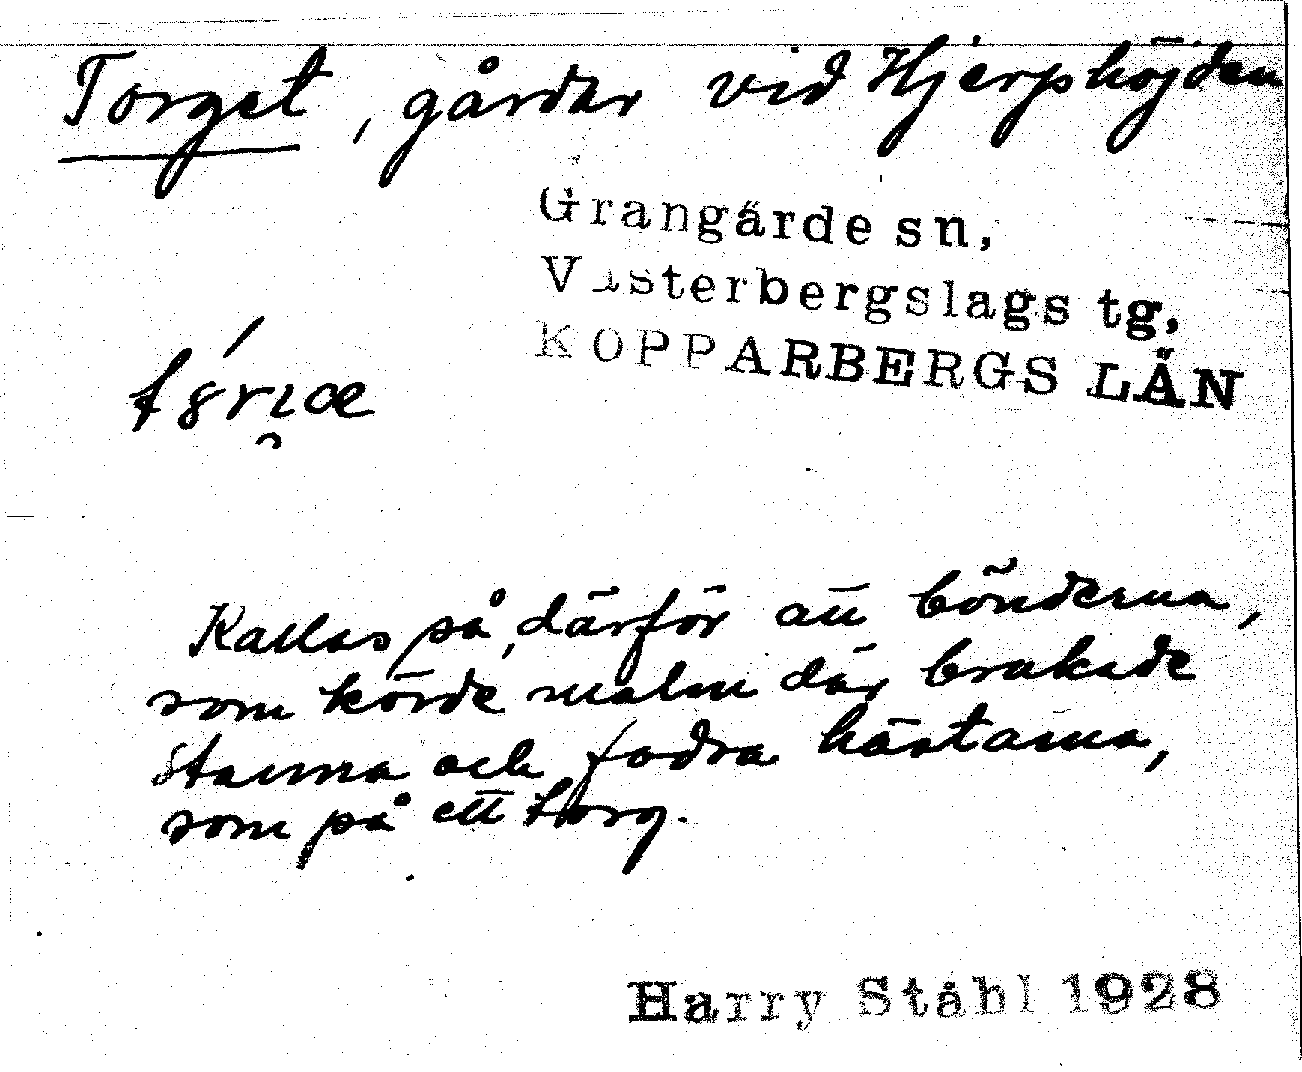 Torget, gårdar vid Hjerphöjden
Grangärde sn,
Västerbergslags tg,
KOPPARBERGS LÄN
Kallas så, därför att bönderna,
som körde malm där brukade
stanna och fodra hästarna,
som på ett torg.
Harry Ståhl 1928